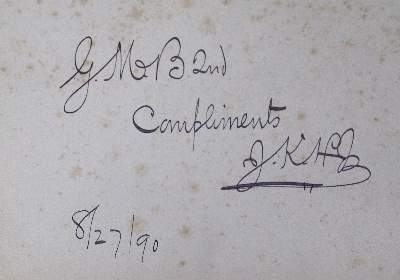 G. M. B 2nd
Compliments
J. K. H. Jr
8/27/90